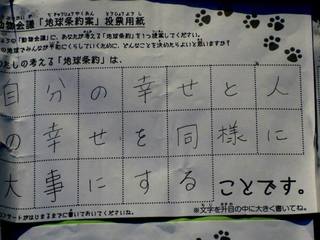 動物会議「地球条約案」投票用紙
の「動物会議」に、あなたが考える「地球条約」を1つ提案してください。
地球でみんなが平和にくらしていくために、どんなことを決めたらよいと思いますか?
たしの考える「地球条約」は、
自分の幸せと人
の幸せを同様に
大事にする ことです。
ンサートがはじまるまでに書いておいてくださいね。
※文字を升目の中に大きく書いてね。